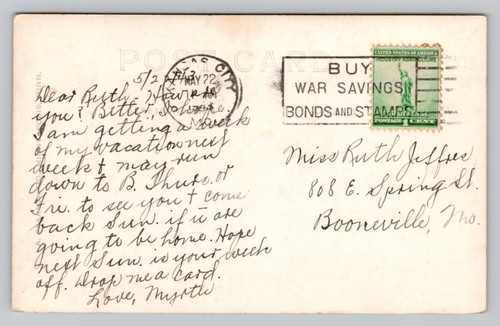 POST CARD
5/21/43
KANSAS CITY
MAY 22
MO.
BUY
WAR SAVINGS
BONDS AND STAMPS
UNITED STATES OF AMERICA
INDUSTRY AGRICULTURE
FOR DEFENSE
1 CENT
Dear Ruth - How are
you? Better, I hope.
I am getting a week
of my vacation next
week & may run
down to B. Thurs. or
Fri. to see you & come
back Sun. if u are
going to be home. Hope
next Sun. is your week
off. Drop me a card.
Love, Myrtle
Miss Ruth Jeffres
808 E. Spring St.
Booneville, Mo.